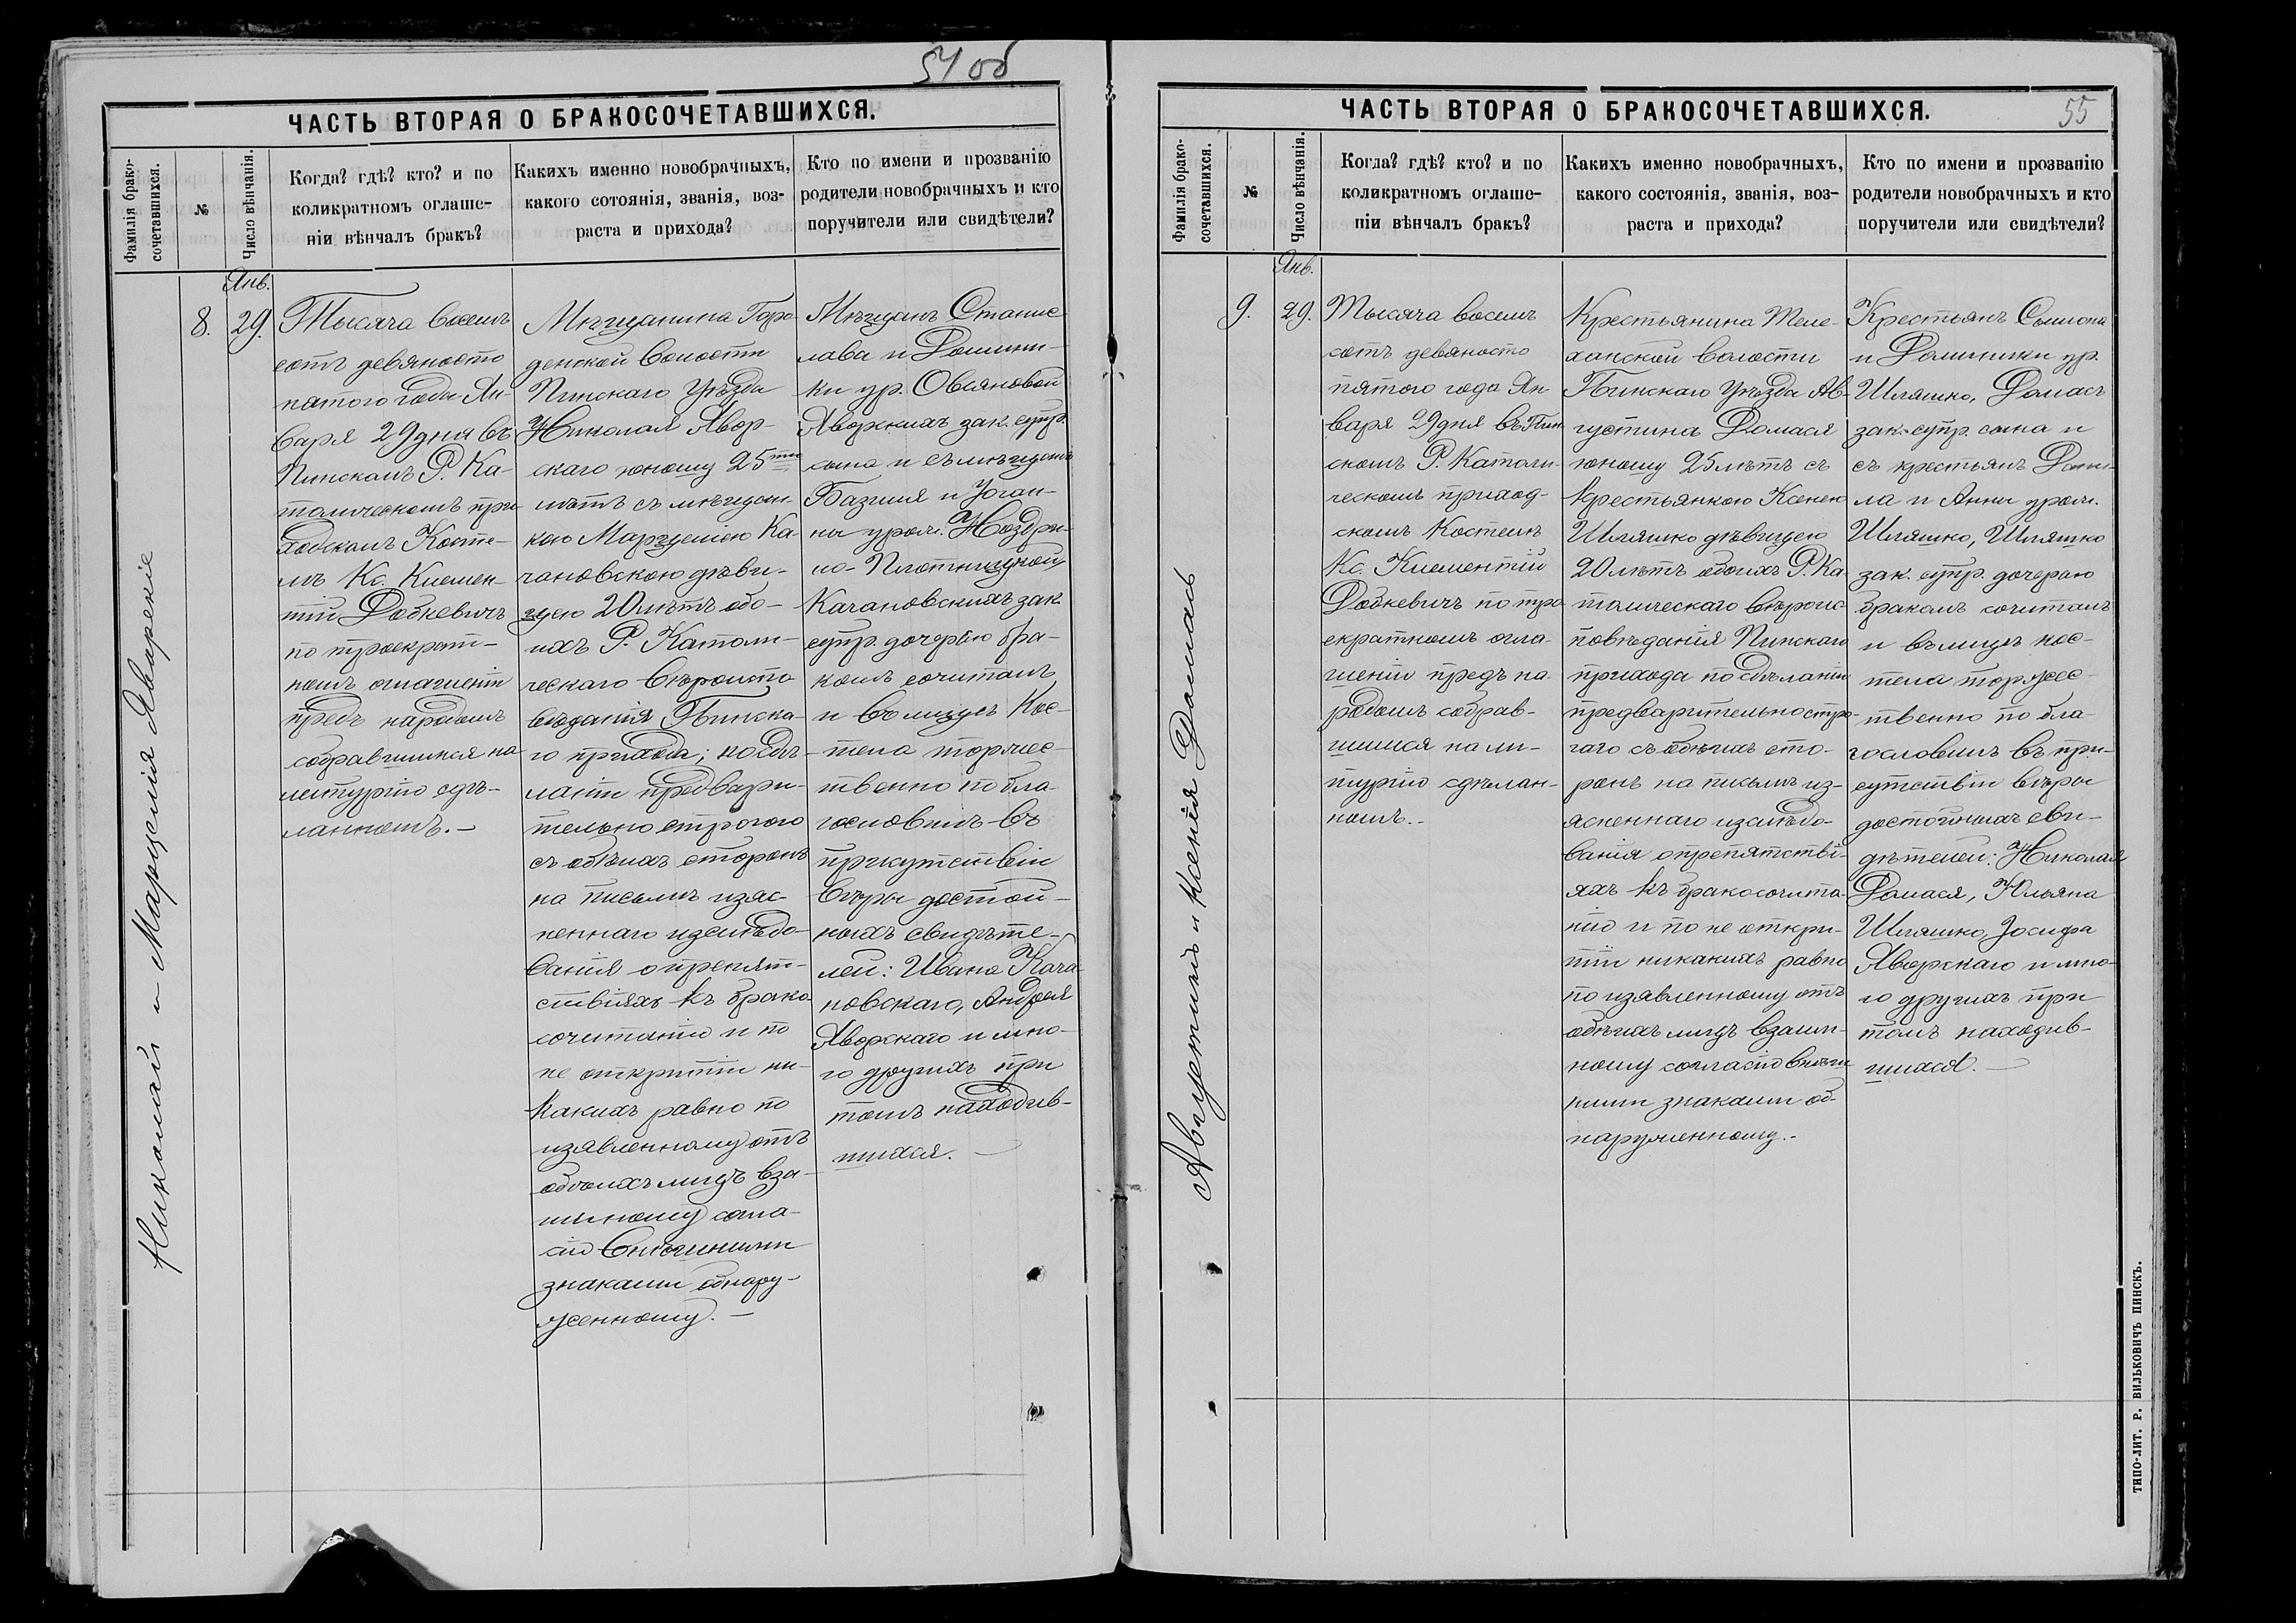 54 об
ЧАСТЬ ВТОРАЯ О БРАКОСОЧЕТАВШИХСЯ.
Фамилія брако-
сочетавшихся.
№
Число вѣнчанія.
Когда? гдѣ? кто? и по
коликратномъ оглаше-
ніи вѣнчалъ бракъ?
Какихъ именно новобрачныхъ,
какого сотоянія, званія, воз-
раста и прихода?
Кто по имени и прозванію
родители новобрачныхъ и кто
поручители или свидѣтели?
Николай и Марцелія Яворскіе
8.
Янв.
29.
Тысяча восемь
сотъ девяносто
пятого года Ян-
варя 29 дня въ
Пинскомъ Р. Ка-
толическомъ при-
ходскомъ Косте-
лѣ Кс. Климен-
тій Добкевичъ
по троекрат-
номъ оглашеніи
предъ народомъ
собравшимся на
литургію сдѣ-
ланномъ.-
Мѣщанина Горо-
денской волости
Пинскаго Уѣзда
Николая Явор-
скаго юношу 25ти
лѣтъ съ мѣщан-
кою Марцеліею Ка-
чановскою дѣви-
цею 20 лѣтъ обо-
ихъ Р. Католи-
ческаго вѣроиспо-
вѣданія Пинска-
го прихода; по сдѣ-
ланіи предвари-
тельно строгого
съ обѣихъ сторонъ
на письмѣ изяс-
неннаго изслѣдо-
ванія о препят-
ствіяхъ къ брако-
сочитанію и по
не открытіи ни-
какихъ равно по
изявленному отъ
обоихъ лицъ вза-
имному согла-
сію внѣшними
знаками обнару-
женному.-
Мѣщанъ Станис-
лава и Домини-
ки ур. Овсяновой
Яворскихъ зак. супр.
сына и съ мѣщанъ
Базилія и Іоган-
ны урож. Ноздри-
но-Плотницкой,
Качановскихъ зак.
супр. дочерью бра-
комъ сочиталъ
и въ лицѣ Кос-
тела торжес-
твенно по бла-
гословилъ въ
присутствіи
вѣры достой-
ныхъ свидѣте-
лей: Ивана Кача-
новскаго, Андрея
Яворскаго и мно-
го другихъ при
томъ находив-
шихся.-
55
ЧАСТЬ ВТОРАЯ О БРАКОСОЧЕТАВШИХСЯ.
Фамилія брако-
сочетавшихся.
№
Число вѣнчанія.
Когда? гдѣ? кто? и по
коликратномъ оглаше-
ніи вѣнчалъ бракъ?
Какихъ именно новобрачныхъ,
какого состоянія, званія, воз-
раста и прихода?
Кто по имени и прозванію
родители новобрачныхъ и кто
поручители или свидѣтели?
Августинъ и Ксенія Домась
9.
Янв.
29.
Тысяча восемь
сотъ девяносто
пятого года Ян-
варя 29 дня въ Пин-
скомъ Р. Католи-
ческомъ приход-
скомъ Костелѣ
Кс. Климентій
Добкевичъ по тро-
екратномъ огла-
шеніи предъ на-
родомъ собрав-
шимся на ли-
тургію сдѣлан-
номъ.-
Крестьянина Теле-
ханской волости
Пинскаго Уѣзда Ав-
густина Домася
юношу 25 лѣтъ съ
крестьянкою Ксеніею
Шляшко дѣвицею
20 лѣтъ обоихъ Р. Ка-
толическаго вѣроис-
повѣданія Пинскаго
прихода по сдѣланіи
предварительно стро-
гаго съ обѣихъ сто-
ронъ на письмѣ из-
ясненнаго изслѣдо-
ванія о препятстві-
яхъ къ бракосочита-
нію и по не откры-
тіи никакихъ равно
по изявленному отъ
обѣихъ лицъ взаим-
ному согласію внѣш-
ними знаками об-
наруженному.-
Крестьянъ Сымона
и Доминики ур.
Шляшко, Домась
зак. супр. сына и
съ крестьянъ Дани-
ла и Анны урож.
Шляшко, Шляшко
зак. супр. дочерью
бракомъ сочиталъ
и въ лицѣ кос-
тела торжес-
твенно по бла-
гословилъ въ при-
сутствіи вѣры
достойныхъ сви-
дѣтелей: Николая
Домася, Юльяна
Шляшко, Іосифа
Яворскаго и мно-
го другихъ при
томъ находив-
шихся.-
ТИПО-ЛИТ. Р. ВИЛЬКОВИЧЪ ПИНСКЪ.